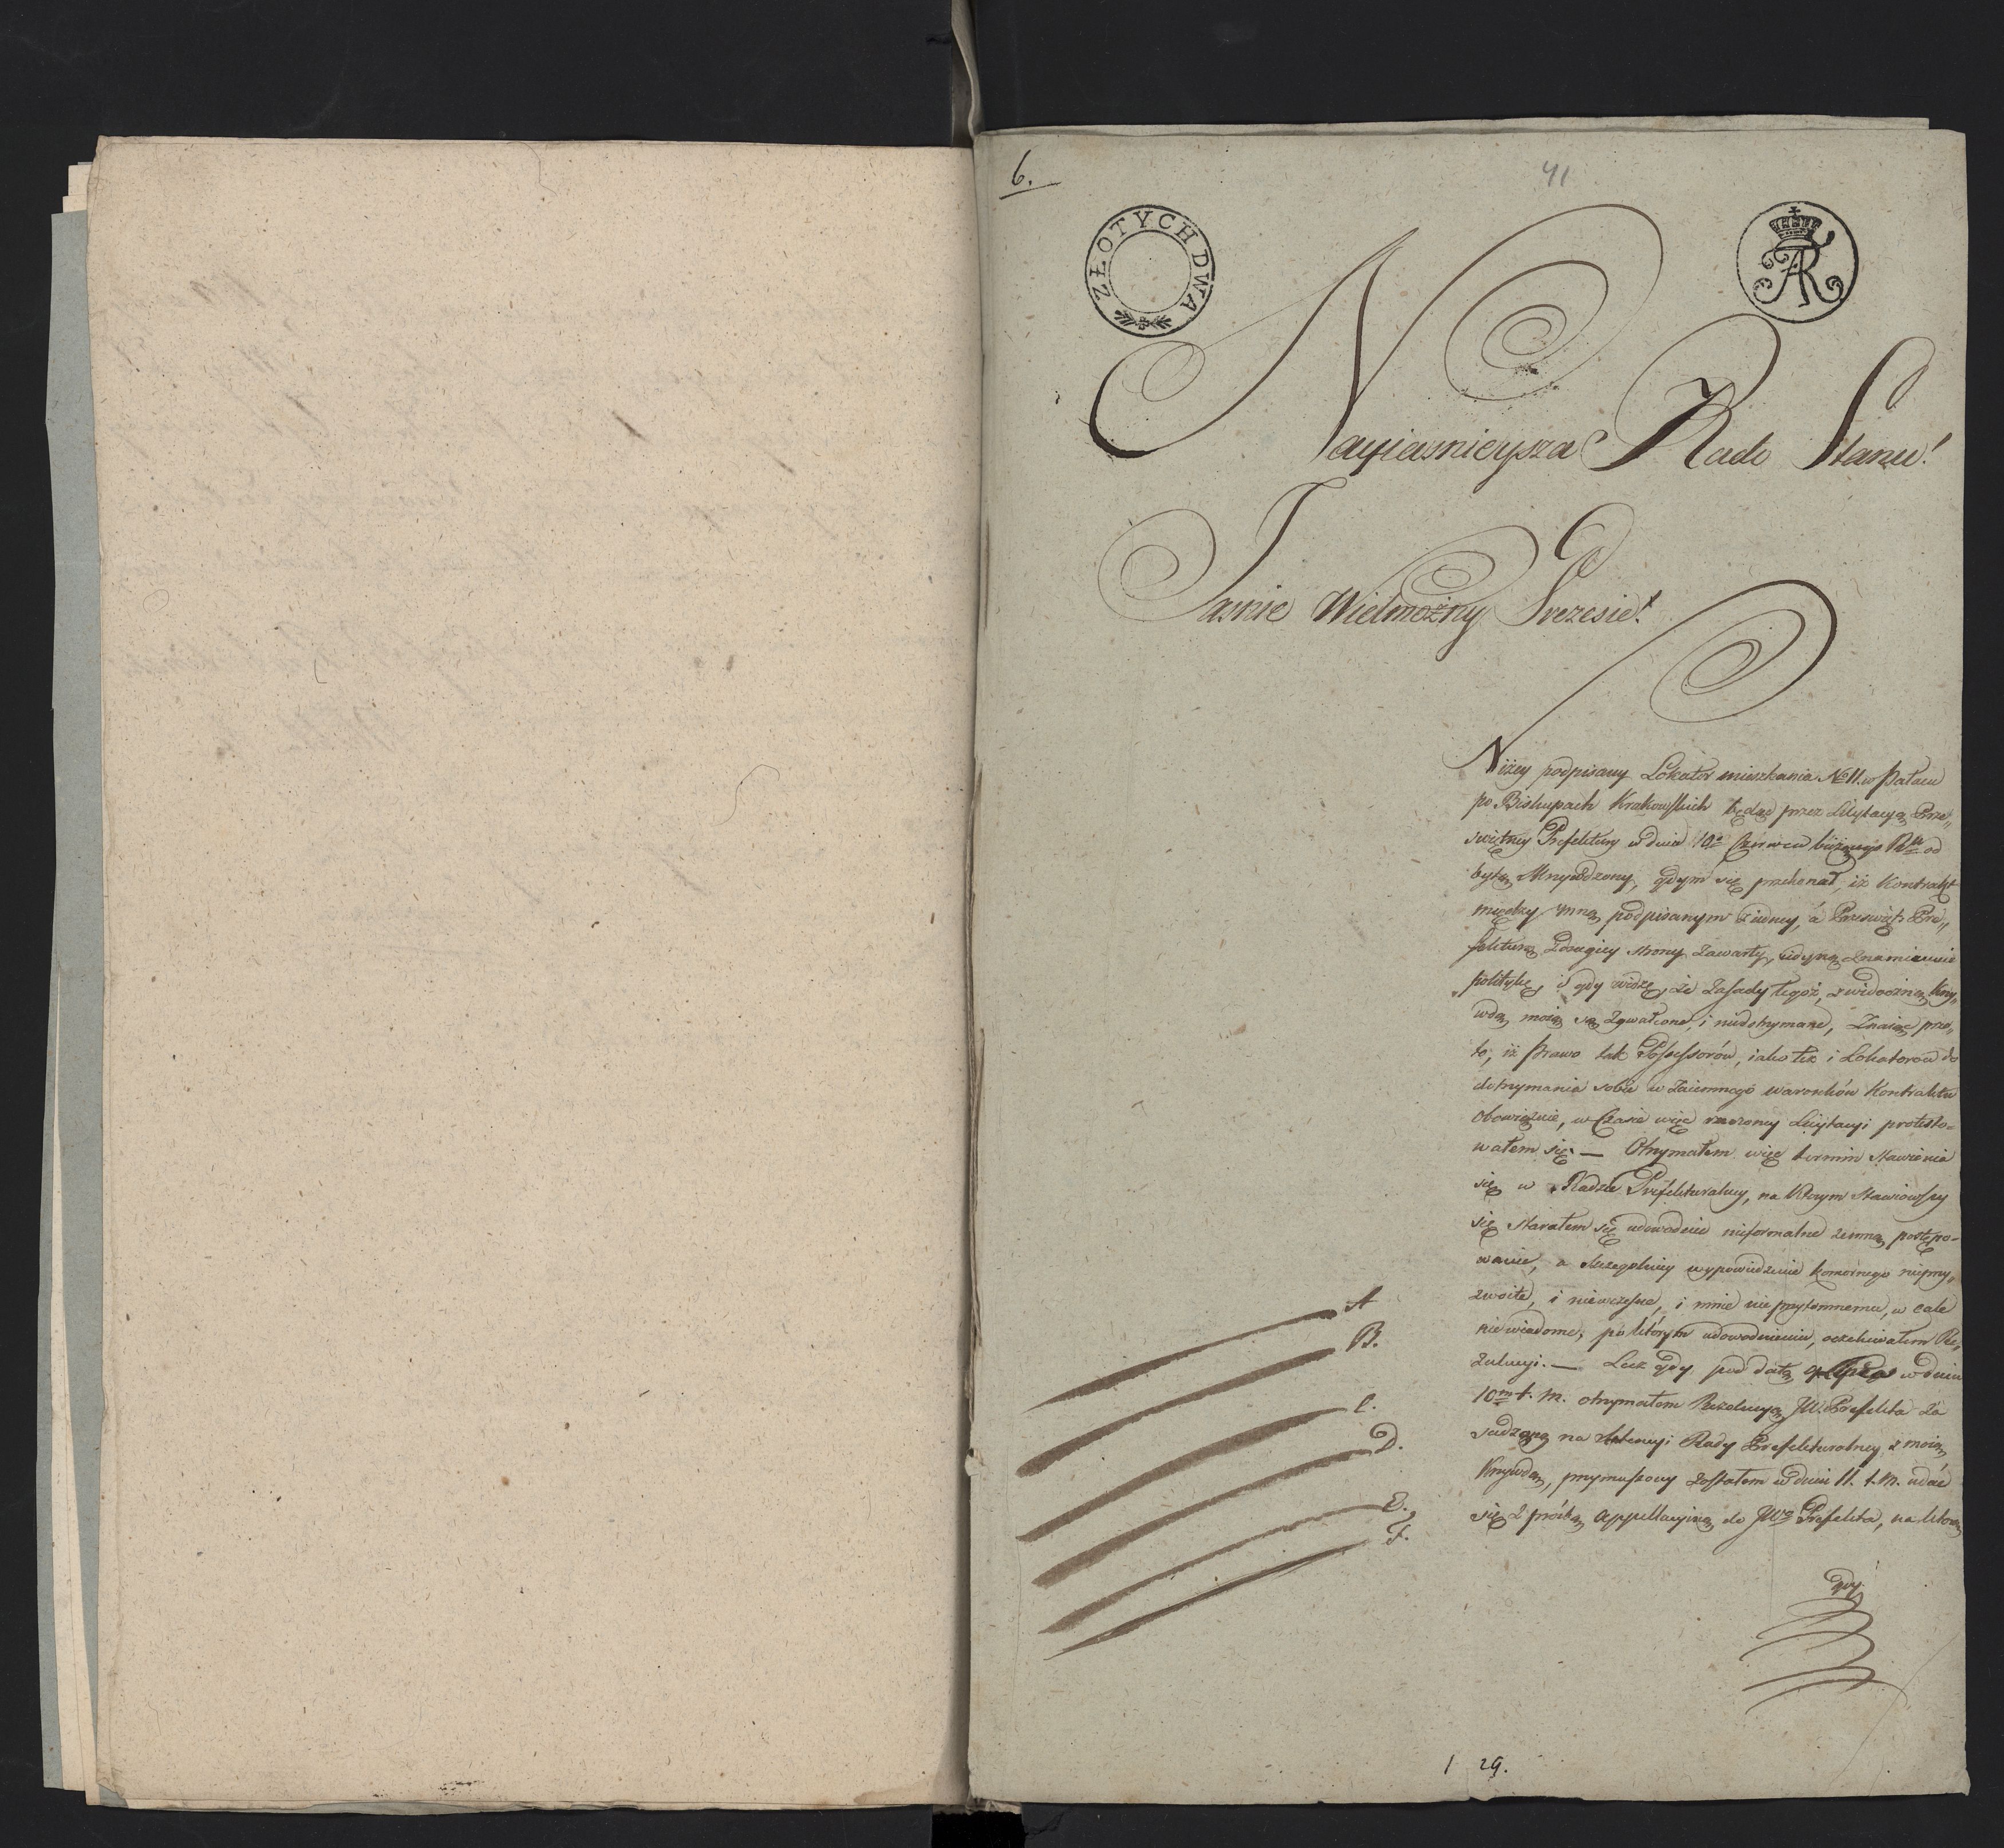 6.
41
ZŁOTYCH DWA
AR
Nayiasnieysza Rado Stanu!
Jasnie Wielmożny Prezesie!
Niżey podpisany Lokator mieszkania No 11. w Pałacu
po Biskupach Krakowskich będąc przez Licytacyą Prze„
świetney Prefektury w dniu 19o Czerwca bieżącego Rku od
bytą skrzywdzony, gdym się przekonał, iż Kontrakt
między mną podpisanym z iedney, á Prześwięt: Pre„
fekturą z drugiey strony zawarty, iedyną znamionuie
politykę, i gdy widzę, że Zasady tegoż, z widoczną krzy„
wdą moią są zgwałcone, i niedotrzymane, Znaiąc prze„
to, iż Prawo tak Possessorów, iako też i Lokatorów do
dotrzymania sobie wzaiemnego warunków Kontraktu
obowięzuie, w Czasie więc rzeczoney Licytacyi protesto„
wałem się. — Otrzymałem więc termin stawienia
się w Radzie Prefekturalney, na którym stawiowszy
się starałem się udowodnić nieformalne zemną postępo„
wanie, a szczegulniey wypowiedzenie komornego nieprzy„
zwoite, i niewczesne, i mnie nieprzytomnemu, w cale
niewiadome, po którym udowodnieniu, oczekiwałem Re„
zulucyi. — Lecz gdy pod datą w dniu
10m t. m. otrzymałem Rezolucyą JW. Prefekta za
sadzoną na Rady Prefekturalney z moią
Krzywdą, przymuszony zostałem w dniu 11. t. m. udać
się z prozbą appellacyiną do JWo Prefekta, na którą
gdy
A
B.
C.
D.
E.
F.
1 29.